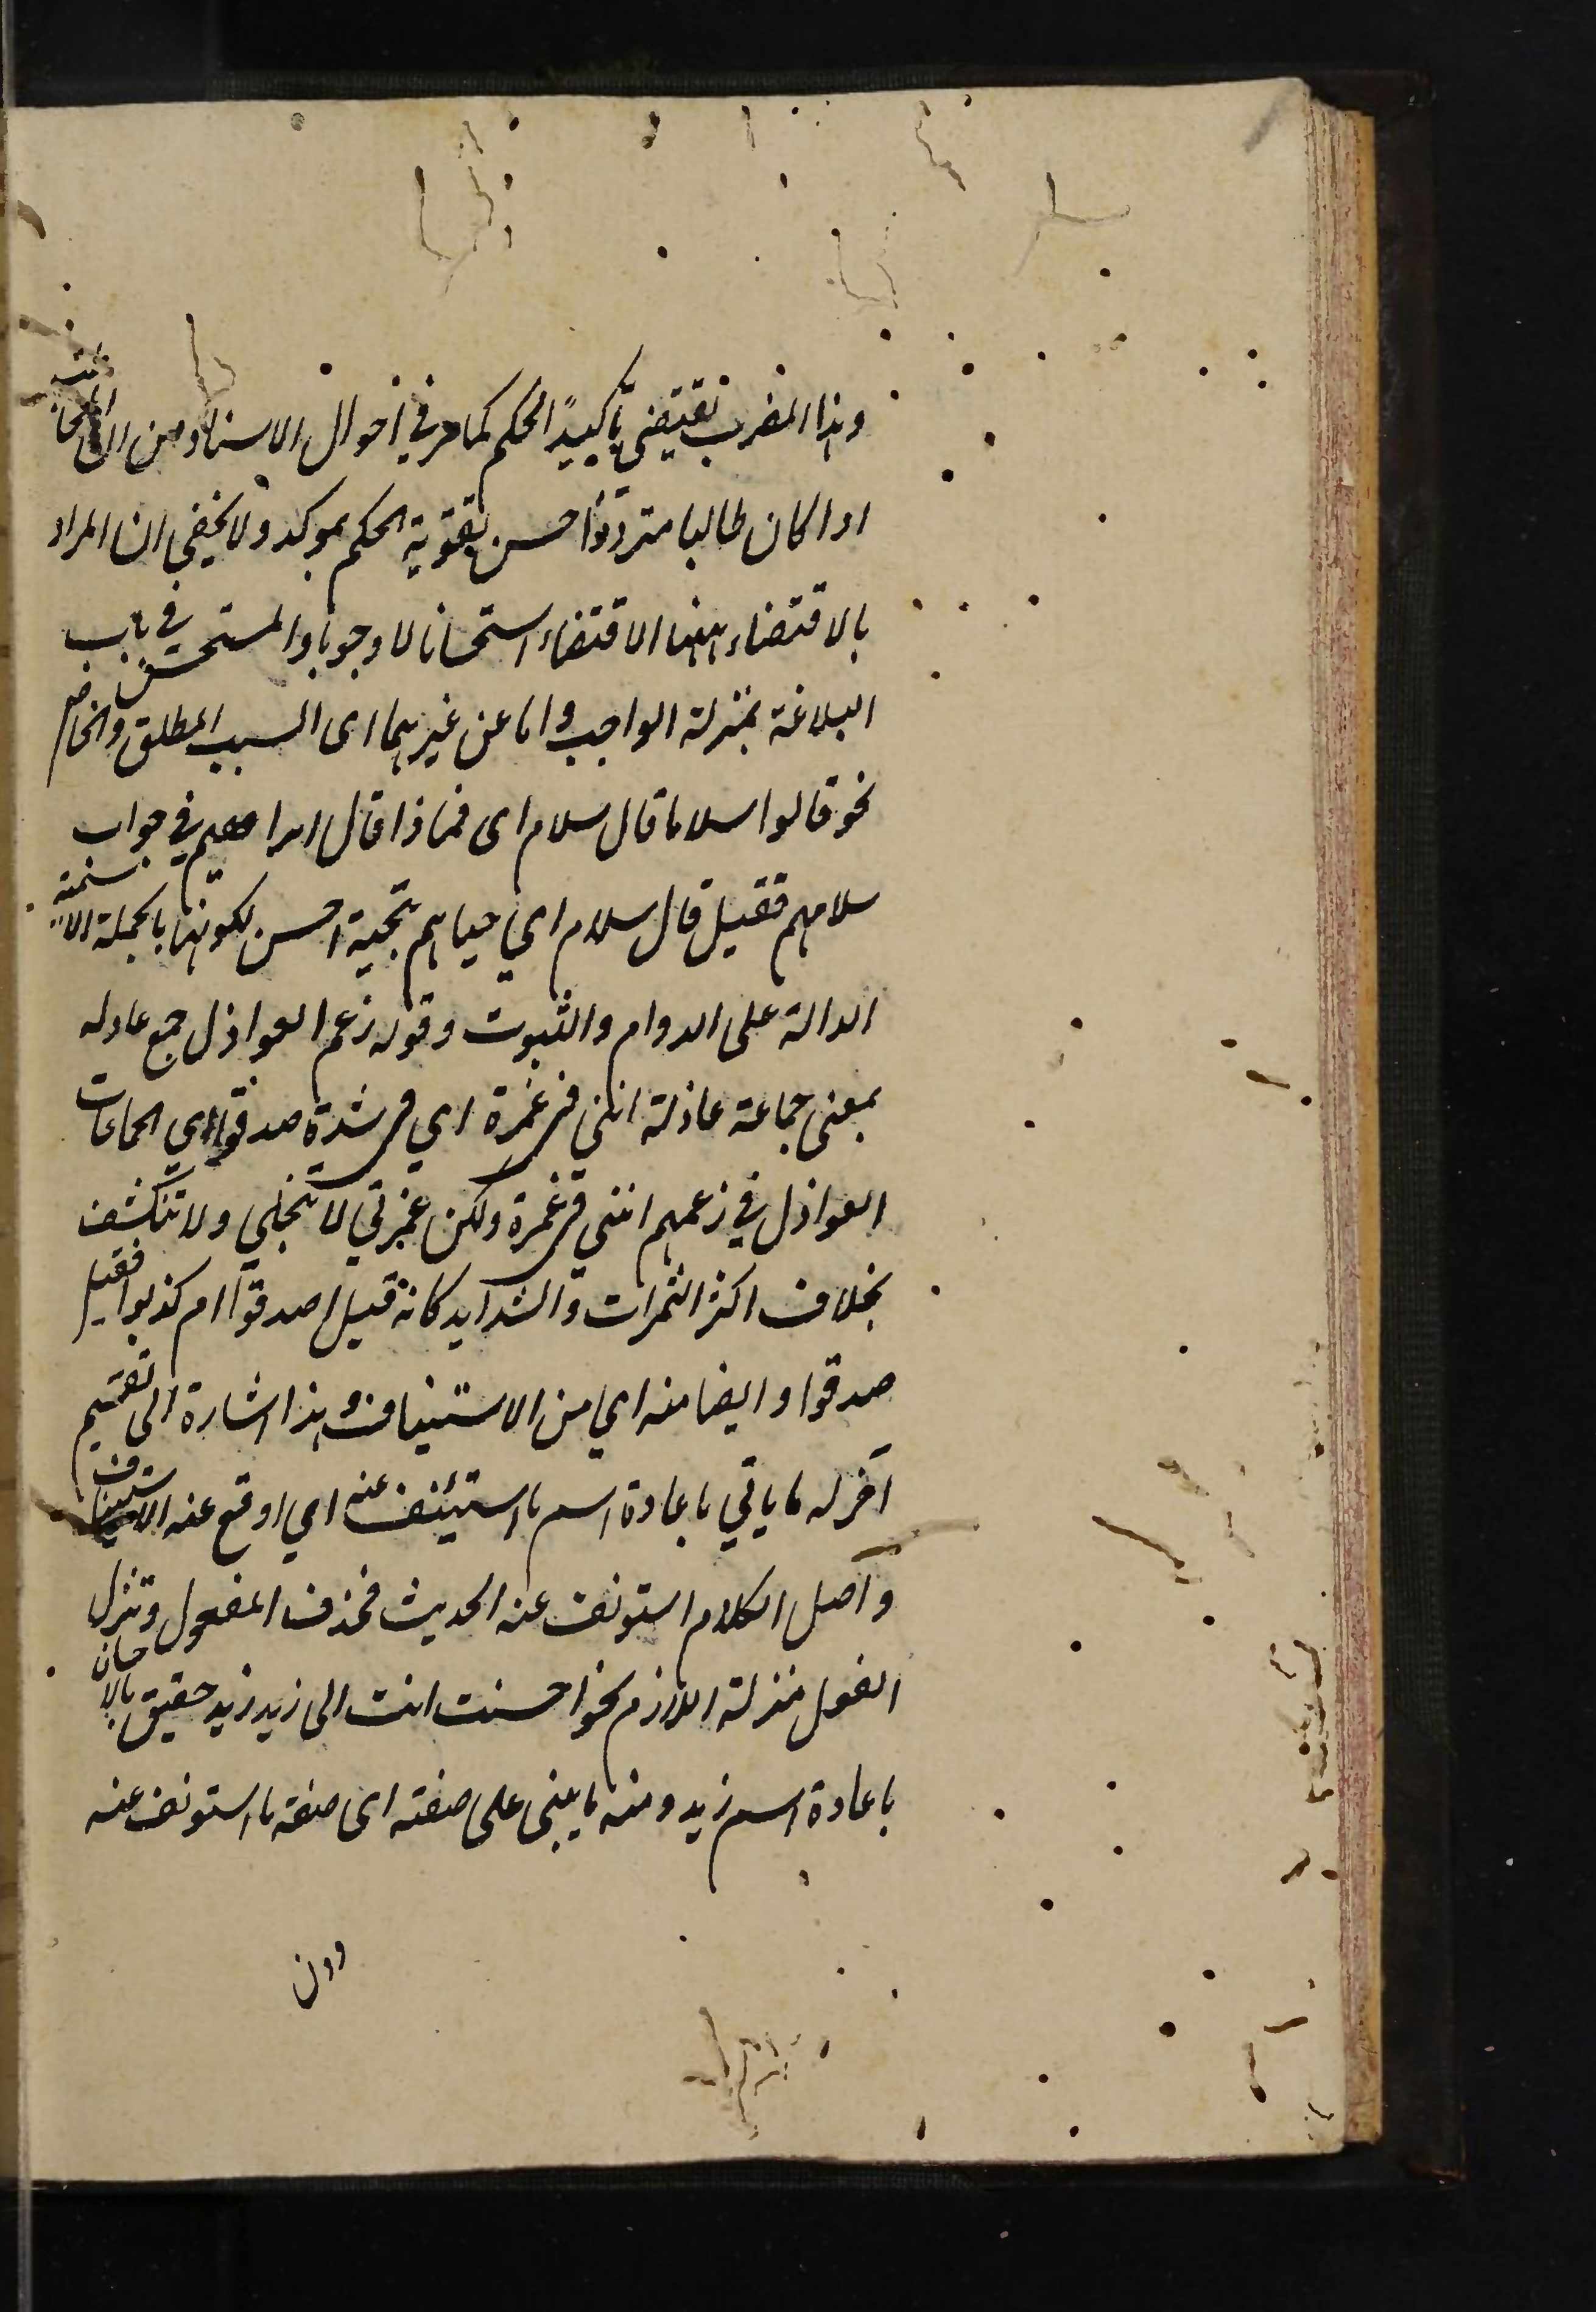 وهذا الضرب يقتضي تأكيد الحكم كما مر في احوال الاسناد من ان المخاطب
اذا كان طالبا مترددا حسن تقوية الحكم بموكد ولا يخفي ان المراد
بالاقتضاء ههنا الاقتضاء استحسانا لا وجوبا والمستحسن في باب
البلاغة بمنزلة الواجب واما عن غيرهما اى السبب المطلق والخاص
نحو قالوا سلاما قال سلام اى فماذا قال ابراهيم في جواب
سلامهم فقيل قال سلام اي حياهم بتحية احسن لكونها بالجملة الاسمية
الدالة على الدوام والثبوت وقوله زعم العواذل جمع عاذله
بمعنى جماعة عاذلة اننى فى غمرة اي فى شدة صدقوا اي الجماعات
العواذل في زعمهم اننى فى غمرة ولكن غمرتي لا تنجلي ولا تنكشف
بخلاف اكثر الغمرات والشدايد كانه قيل اصدقوا ام كذبوا فقيل
صدقوا وايضا منه اي من الاستيناف وهذا اشارة الى تقسيم
آخر له ما ياتي باعادة اسم ما استئنف عنه اي اوقع عنه الاستيناف
واصل الكلام استونف عنه الحديث فحذف المفعول ونزل
الفعل منزلة اللازم نحو احسنت انت الى زيد زيد حقيق بالاحسان
باعادة اسم زيد ومنه ما يبنى على صفته اى صفة ما استونف عنه
دون